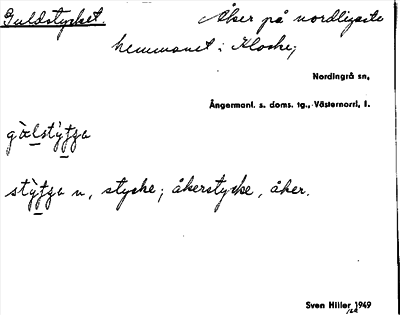 Guldstycket. Åker på nordligaste
hemmanet i Klocke;
Nordingrå sn,
Ångermanl. s. doms. tg., Västernorrl, l.
stycke; åkerstycke, åker.
Sven Hiller 1949